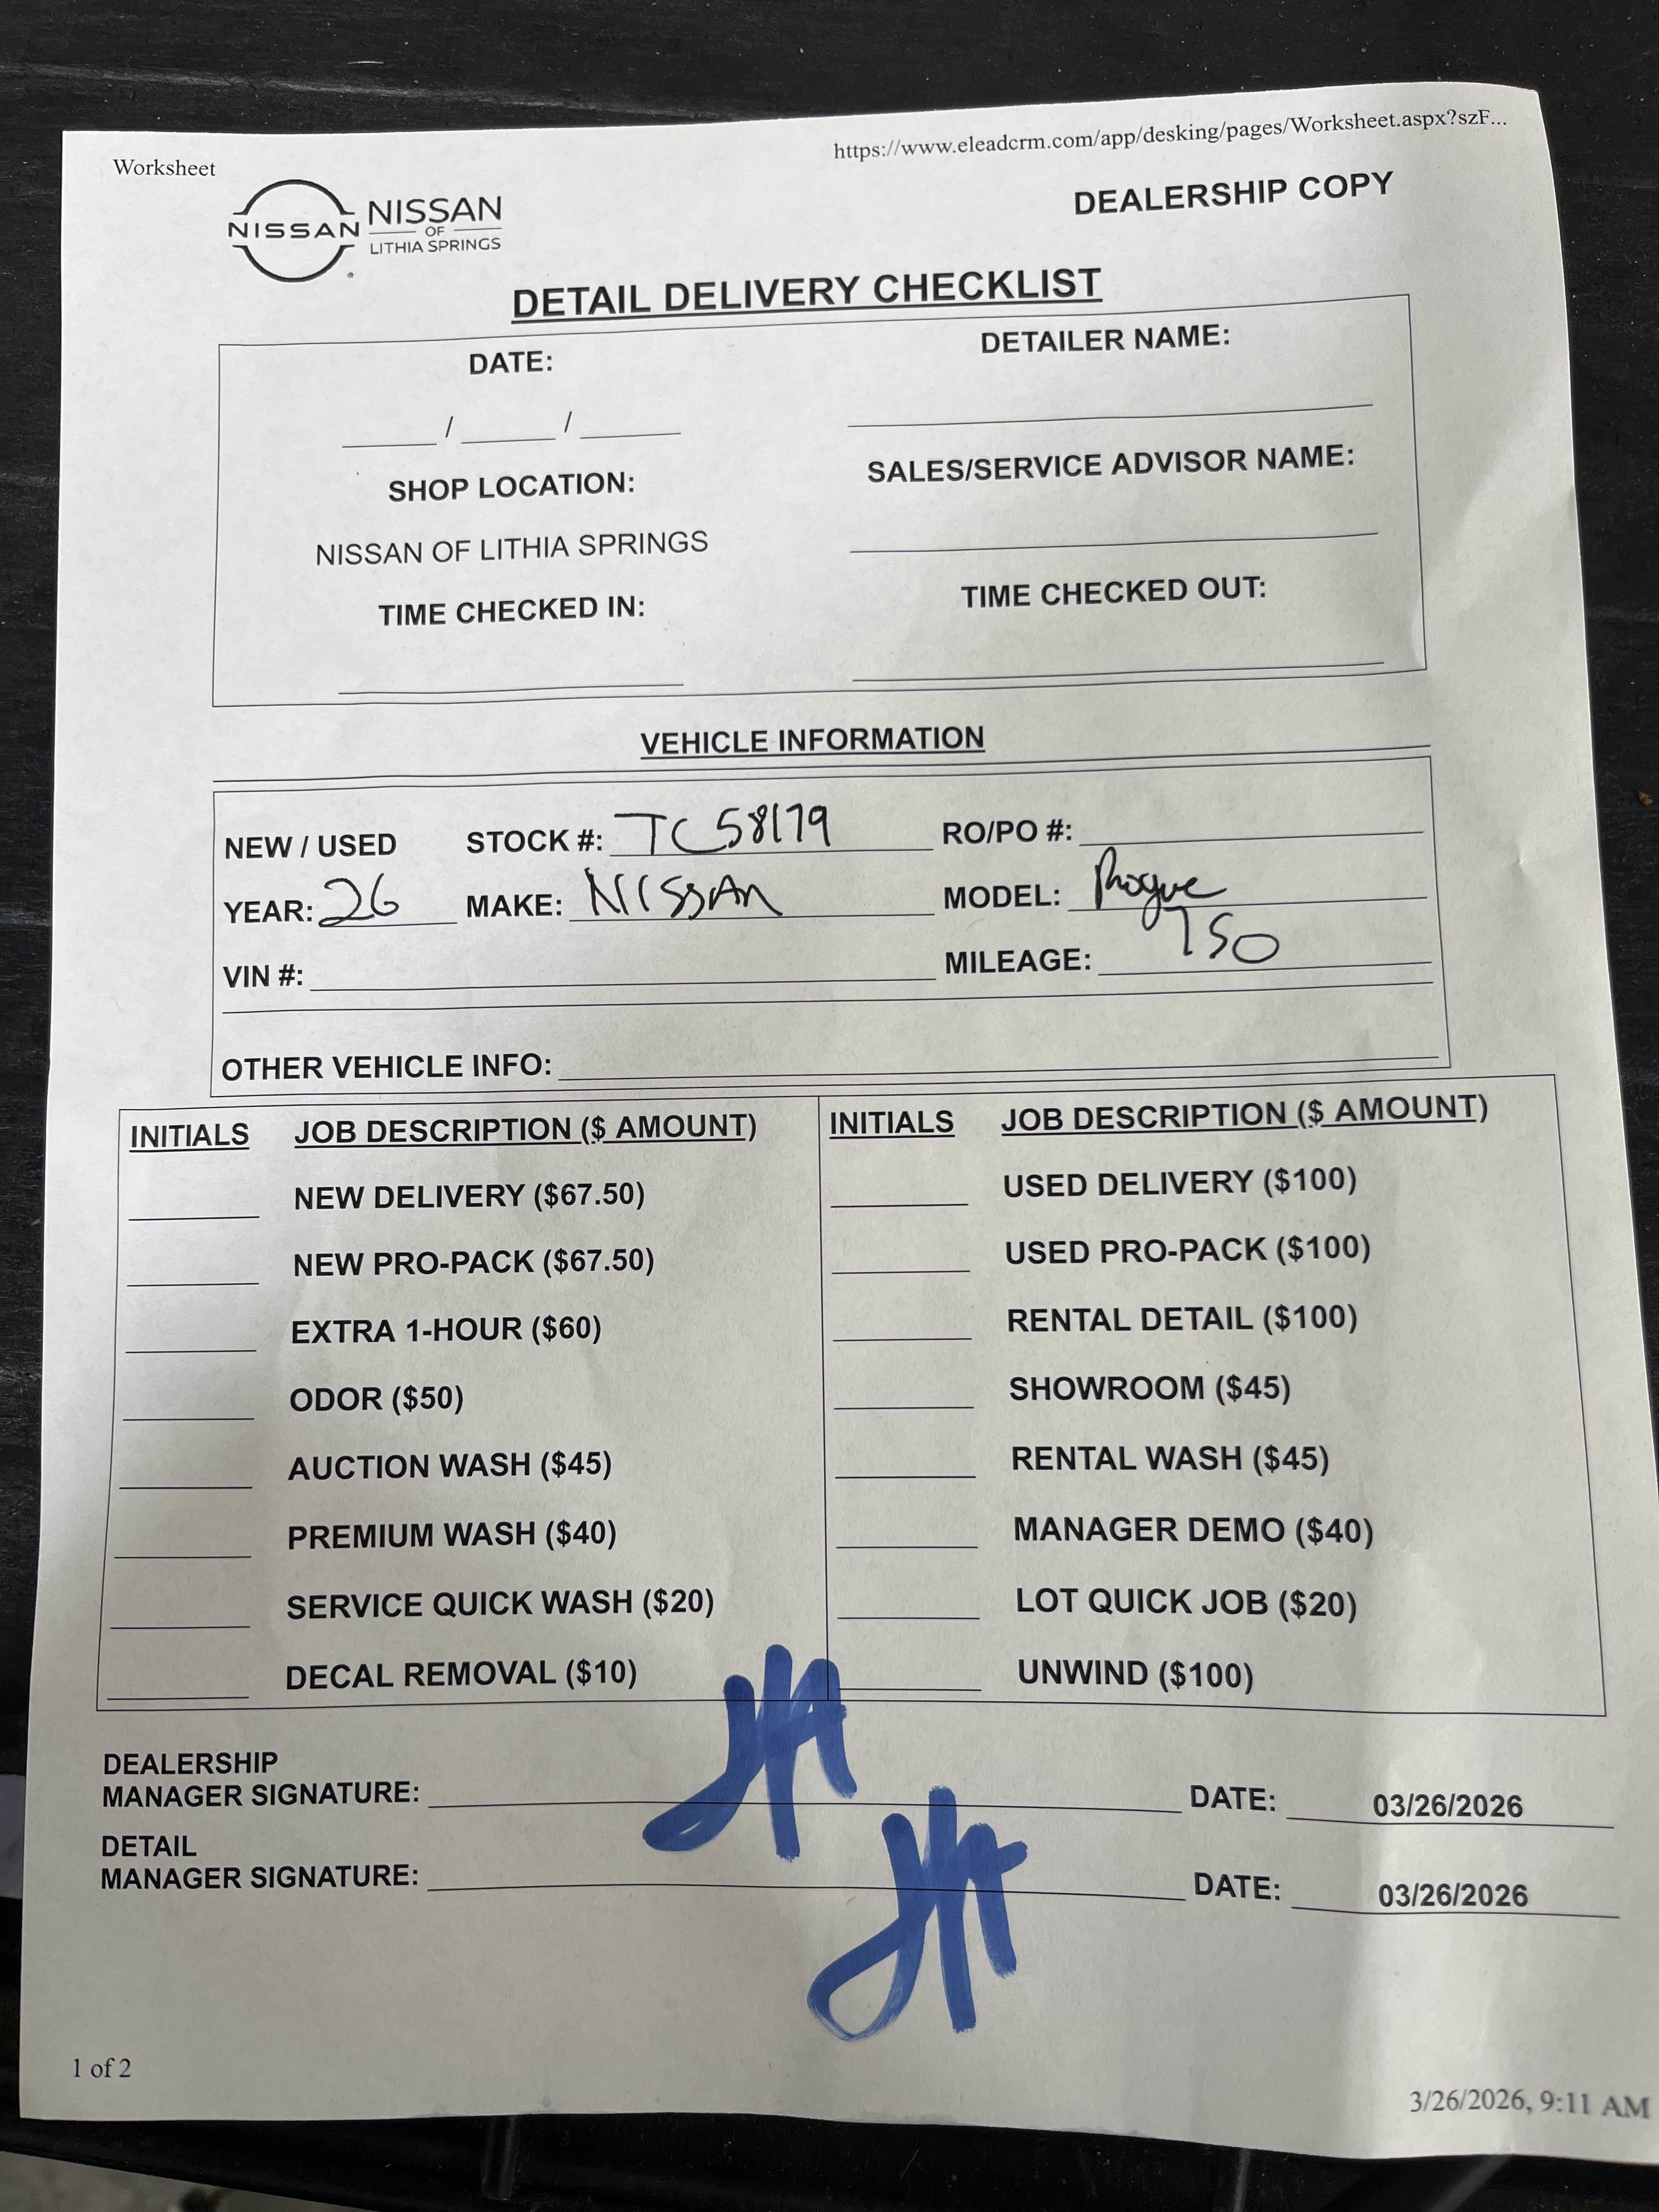 Worksheet
https://www.eleadcrm.com/app/desking/pages/Worksheet.aspx?szF...
NISSAN
NISSAN
OF
LITHIA SPRINGS
DEALERSHIP COPY
DETAIL DELIVERY CHECKLIST
DATE:
DETAILER NAME:
____ / ____ / ____
SHOP LOCATION:
SALES/SERVICE ADVISOR NAME:
NISSAN OF LITHIA SPRINGS
TIME CHECKED IN:
TIME CHECKED OUT:
VEHICLE INFORMATION
NEW / USED STOCK #: TC58179 RO/PO #:
YEAR: 26 MAKE: NISSAN MODEL: Rogue
VIN #: MILEAGE: 750
OTHER VEHICLE INFO:
INITIALS JOB DESCRIPTION ($ AMOUNT) INITIALS JOB DESCRIPTION ($ AMOUNT)
NEW DELIVERY ($67.50) USED DELIVERY ($100)
NEW PRO-PACK ($67.50) USED PRO-PACK ($100)
EXTRA 1-HOUR ($60) RENTAL DETAIL ($100)
ODOR ($50) SHOWROOM ($45)
AUCTION WASH ($45) RENTAL WASH ($45)
PREMIUM WASH ($40) MANAGER DEMO ($40)
SERVICE QUICK WASH ($20) LOT QUICK JOB ($20)
DECAL REMOVAL ($10) UNWIND ($100)
DEALERSHIP
MANAGER SIGNATURE: DATE: 03/26/2026
DETAIL
MANAGER SIGNATURE: DATE: 03/26/2026
1 of 2
3/26/2026, 9:11 AM